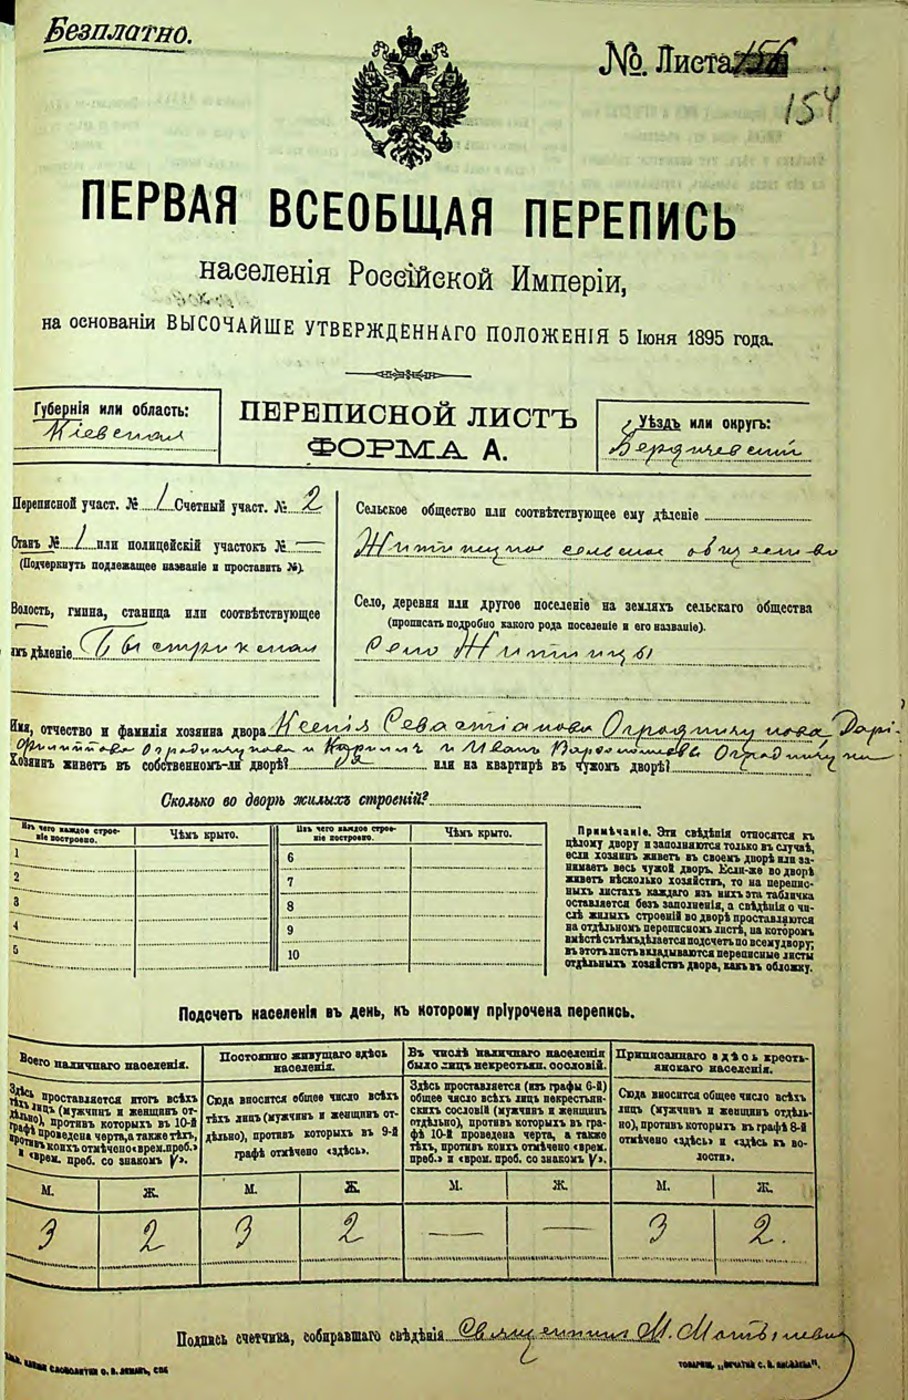 Безплатно.
№. Листа 156
154
ПЕРВАЯ ВСЕОБЩАЯ ПЕРЕПИСЬ
населенія Россійской Имперіи,
на основаніи ВЫСОЧАЙШЕ УТВЕРЖДЕННАГО ПОЛОЖЕНІЯ 5 Іюня 1895 года.
Губернія или область:
Кіевская
ПЕРЕПИСНОЙ ЛИСТЪ
ФОРМА А.
Уѣздъ или округъ:
Бердичевскій
Переписной участ. № 1 Счетный участ. № 2
Станъ № 1 или полицейскій участокъ № —
(Подчеркнуть подлежащее названіе и проставить №).
Волость, гмина, станица или соотвѣтствующее
имъ дѣленіе Быстрикская
Сельское общество или соотвѣтствующее ему дѣленіе
Житинецкое сельское общество
Село, деревня или другое поселеніе на земляхъ сельскаго общества
(прописать подробно какого рода поселеніе и его названіе).
село Житинцы
Имя, отчество и фамилія хозяина двора Ксенія Севастіанова Огродничукова, Дарі-
Филиппова Огродничукова и Кириллъ и Иванъ Варфоломеевы Огродничуки
Хозяинъ живетъ въ собственномъ-ли дворѣ? да или на квартирѣ въ чужомъ дворѣ?
Сколько во дворѣ жилыхъ строеній?
Изъ чего каждое строе-
ніе построено.
Чѣмъ крыто.
Изъ чего каждое строе-
ніе построено.
Чѣмъ крыто.
1
2
3
4
5
6
7
8
9
10
Примѣчаніе. Эти свѣдѣнія относятся къ
цѣлому двору и заполняются только въ случаѣ,
если хозяинъ живетъ въ своемъ дворѣ или за-
нимаетъ весь чужой дворъ. Если-же во дворѣ
живетъ нѣсколько хозяйствъ, то на перепис-
ныхъ листахъ каждаго изъ нихъ эта табличка
оставляется безъ заполненія, а свѣдѣнія о чи-
слѣ жилыхъ строеній во дворѣ проставляются
на отдѣльномъ переписномъ листѣ, на которомъ
вмѣстѣ съ тѣмъ дѣлается подсчетъ по всему двору;
въ этотъ листъ вкладываются переписные листы
отдѣльныхъ хозяйствъ двора, какъ въ обложку.
Подсчетъ населенія въ день, къ которому пріурочена перепись.
Всего наличнаго населенія.
Здѣсь проставляется итогъ всѣхъ
тѣхъ лицъ (мужчинъ и женщинъ от-
дѣльно), противъ которыхъ въ 10-й
графѣ проведена черта, а также тѣхъ,
противъ коихъ отмѣчено «врем. преб.»
и «врем. преб. со знакомъ V».
Постоянно живущаго здѣсь
населенія.
Сюда вносится общее число всѣхъ
тѣхъ лицъ (мужчинъ и женщинъ от-
дѣльно), противъ которыхъ въ 9-й
графѣ отмѣчено «здѣсь».
Въ числѣ наличнаго населенія
было лицъ некрестьян. сословій.
Здѣсь проставляется (изъ графы 6-й)
общее число всѣхъ лицъ некрестьян-
скихъ сословій (мужчинъ и женщинъ
отдѣльно), противъ которыхъ въ гра-
фѣ 10-й проведена черта, а также
тѣхъ, противъ коихъ отмѣчено «врем.
преб.» и «врем. преб. со знакомъ V».
Приписаннаго здѣсь кресть-
янскаго населенія.
Сюда вносится общее число всѣхъ
лицъ (мужчинъ и женщинъ отдѣль-
но), противъ которыхъ въ графѣ 8-й
отмѣчено «здѣсь» и «здѣсь къ во-
лости».
М. Ж. М. Ж. М. Ж. М. Ж.
3 2 3 2 — — 3 2.
Подпись счетчика, собиравшаго свѣдѣнія Священникъ М.